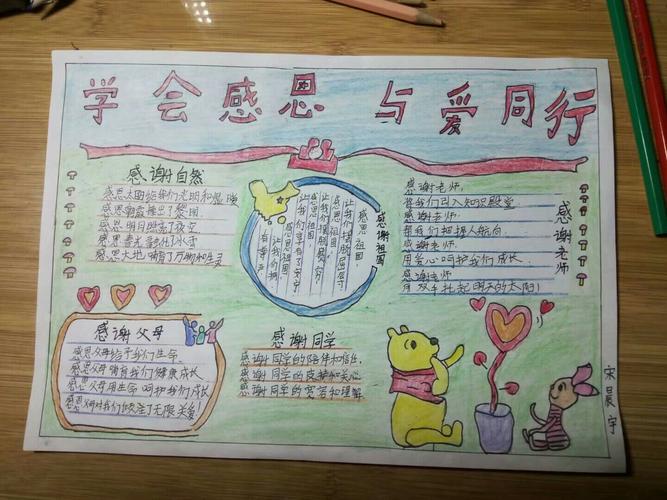 学会感恩 与爱同行
感谢自然
感恩太阳给我们光明和温暖
感恩明月照亮了夜空
感恩大地哺育了万物和生灵
感谢祖国
感恩祖国
感恩祖国
感恩祖国
感谢老师
感谢老师,
将我们引入知识殿堂
感谢老师,
帮我们把握人航向
感谢老师,
用爱心呵护我们成长
感谢老师
用双手托起明天的太阳!
感谢父母
感恩父母给予我们生命
感恩父母哺育我们健康成长
感恩父母用生命呵护我们成长
感恩父母对我们倾注了无限关爱!
感谢同学
感谢同学的陪伴和信任
感谢同学的支持和关心
感谢同学的宽容和理解
宋晨宇